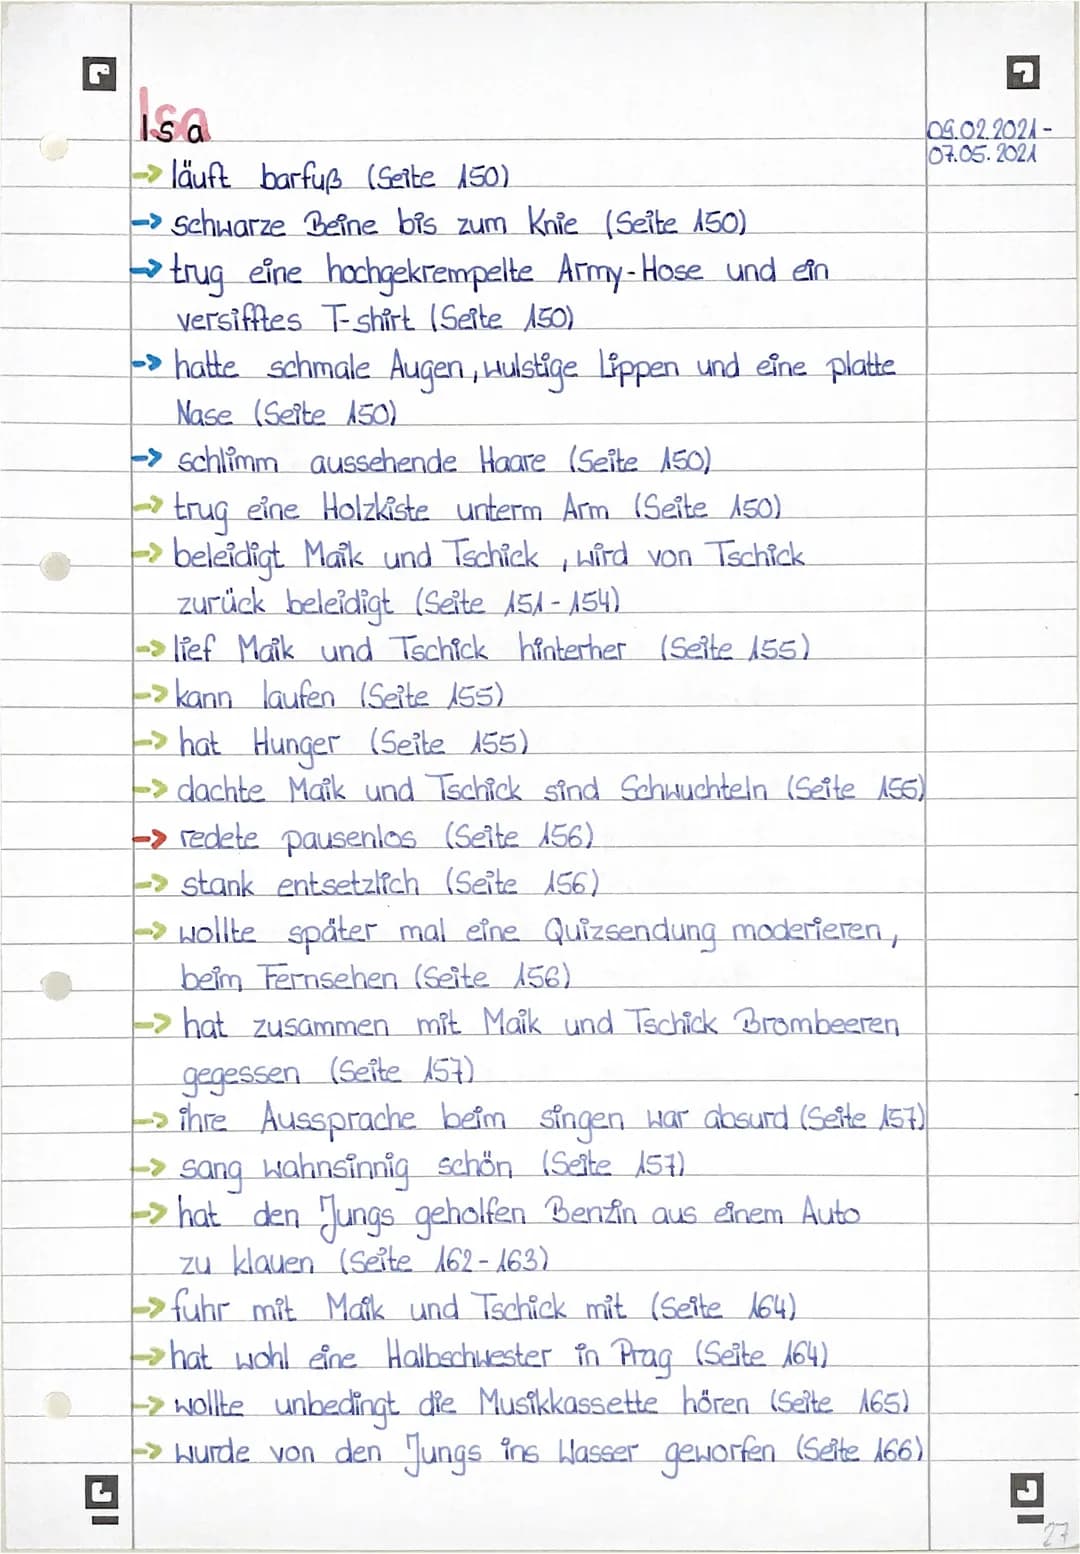 Isa
09.02.2021 -
07.05.2021
-> läuft barfuß (Seite 150)
-> schwarze Beine bis zum Knie (Seite 150)
-> trug eine hochgekrempelte Army-Hose und ein
versifftes T-shirt (Seite 150)
-> hatte schmale Augen, wulstige Lippen und eine platte
Nase (Seite 150)
-> schlimm aussehende Haare (Seite 150)
-> trug eine Holzkiste unterm Arm (Seite 150)
-> beleidigt Maik und Tschick, wird von Tschick
zurück beleidigt (Seite 151-154)
-> lief Maik und Tschick hinterher (Seite 155)
-> kann laufen (Seite 155)
-> hat Hunger (Seite 155)
-> dachte Maik und Tschick sind Schwuchteln (Seite 155)
-> redete pausenlos (Seite 156)
-> stank entsetzlich (Seite 156)
-> wollte später mal eine Quizsendung moderieren,
beim Fernsehen (Seite 156)
-> hat zusammen mit Maik und Tschick Brombeeren
gegessen (Seite 157)
-> ihre Aussprache beim singen war absurd (Seite 157)
-> sang wahnsinnig schön (Seite 157)
-> hat den Jungs geholfen Benzin aus einem Auto
zu klauen (Seite 162-163)
-> fuhr mit Maik und Tschick mit (Seite 164)
-> hat wohl eine Halbschwester in Prag (Seite 164)
-> wollte unbedingt die Musikkassette hören (Seite 165)
-> wurde von den Jungs ins Wasser geworfen (Seite 166)
27